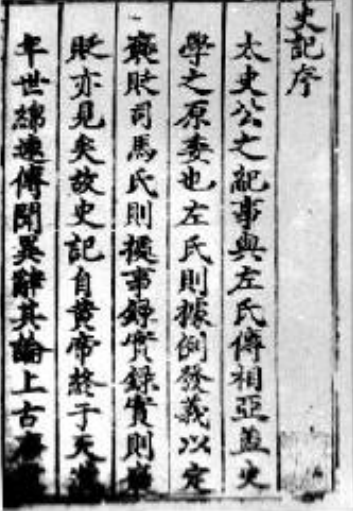 史記序
太史公之紀事與左氏傳相亞蓋史
學之原委也左氏則據例發義以定
襃貶司馬氏則據事錄實錄實則襃
貶亦見矣故史記自黃帝終于天漢
年世綿遠傳聞異辭其論上古